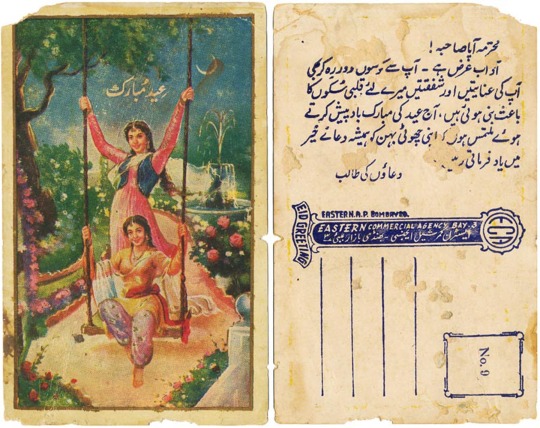 عید مُبارکت
محترمہ آپا صاحبہ!
آداب عرض ہے - آپ سے کوسوں دور رہ کر بھی
آپ کی عنایتیں اور شفقتیں میرے لئے قلبی سکون کا
باعث بنی ہوئی ہیں، آج عید کی مبارکباد پیش کرتے
ہوئے ملتمس ہوں کہ اپنی چھوٹی بہن کو ہمیشہ دعائے خیر
میں یاد فرماتی رہیں
دعاؤں کی طالب
EASTERN.A.P. BOMBAY
EID GREETING
EASTERN COMMERCIAL AGENCY. BAY. 3
ایسٹرن کمرشیل ایجنسی - بھنڈی بازار بمبئی ۳
ECA
No. 9